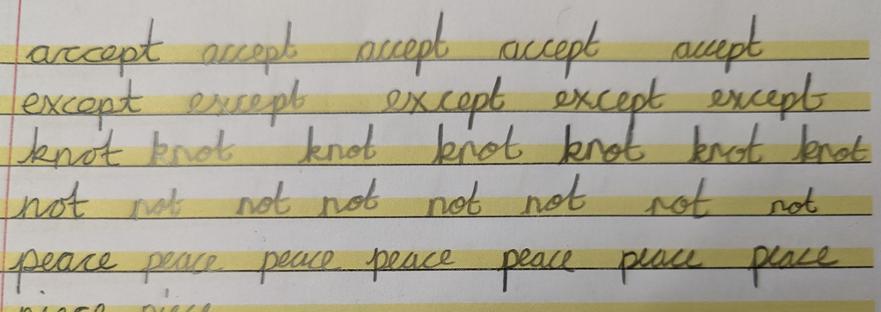 accept accept accept accept accept
except except except except except
knot knot knot knot knot knot knot
not not not not not not not not
peace peace peace peace peace peace peace